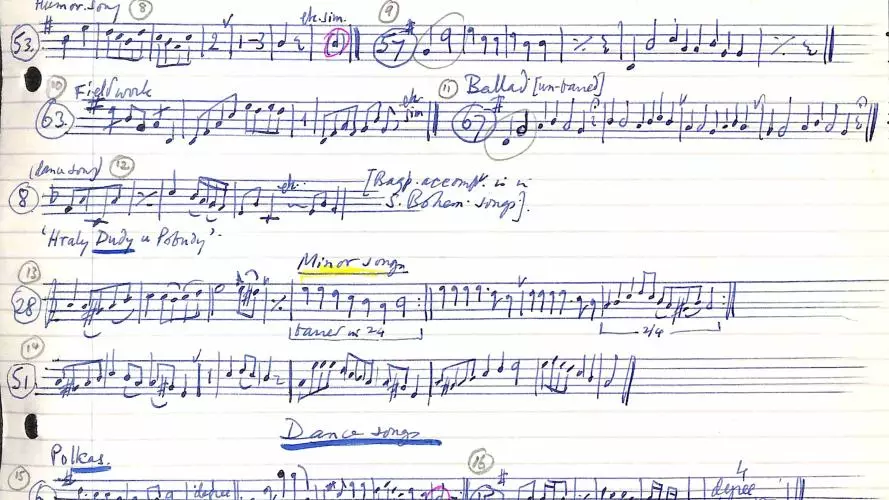 Humor. song 8 9
etc. sim.
53. 2 1-3 57
10 Fieldwork 11 Ballad [un-barred]
etc. sim
63. 1 67
(dance song) 12
8 etc. [Bagp. accompt. is in
S. Bohem. songs].
'Hraly Dudy u Pobudy'.
Minor songs
13
28
barred in 2/4 2/4
14
51. 1 2
Dance songs
Polkas.
15 16
degree 4
degree